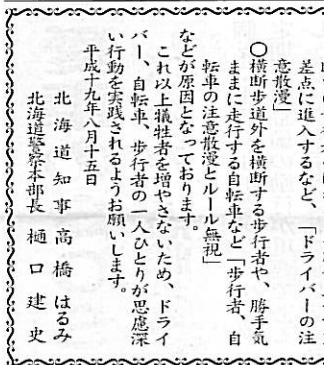 差点に進入するなど、「ドライバーの注
意散漫」
○横断歩道外を横断する歩行者や、勝手気
ままに走行する自転車など「歩行者、自
転車の注意散漫とルール無視」
などが原因となっております。
これ以上犠牲者を増やさないため、ドライ
バー、自転車、歩行者の一人ひとりが思慮深
い行動を実践されるようお願いします。
平成十九年八月十五日
北海道知事 高橋はるみ
北海道警察本部長 樋口建史